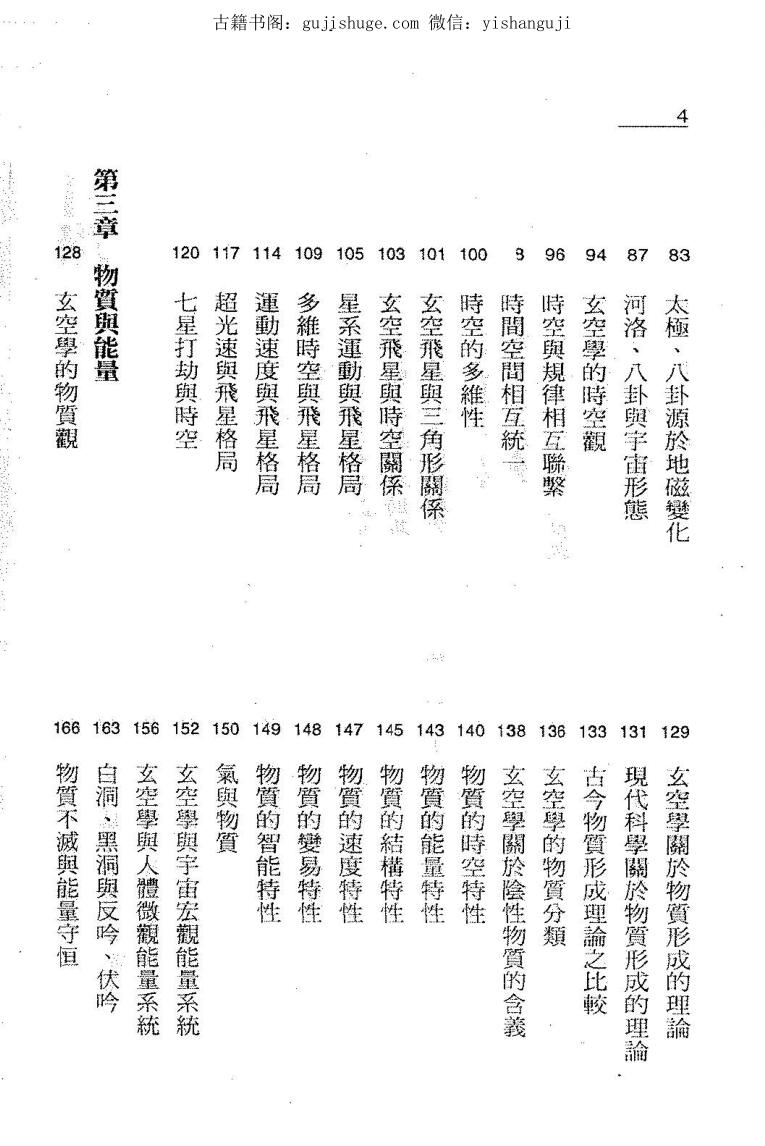 古籍书阁：gujishuge.com 微信：yishanguji
4
83 太極、八卦源於地磁變化
87 河洛、八卦與宇宙形態
94 玄空學的時空觀
96 時空與規律相互聯繫
8 時間空間相互統一
100 時空的多維性
101 玄空飛星與三角形關係
103 玄空飛星與時空關係
105 星系運動與飛星格局
109 多維時空與飛星格局
114 運動速度與飛星格局
117 超光速與飛星格局
120 七星打劫與時空
第三章 物質與能量
128 玄空學的物質觀
129 玄空學關於物質形成的理論
131 現代科學關於物質形成的理論
133 古今物質形成理論之比較
136 玄空學的物質分類
138 玄空學關於陰性物質的含義
140 物質的時空特性
143 物質的能量特性
145 物質的結構特性
147 物質的速度特性
148 物質的變易特性
149 物質的智能特性
150 氣與物質
152 玄空學與宇宙宏觀能量系統
156 玄空學與人體微觀能量系統
163 白洞、黑洞與反吟、伏吟
166 物質不滅與能量守恒